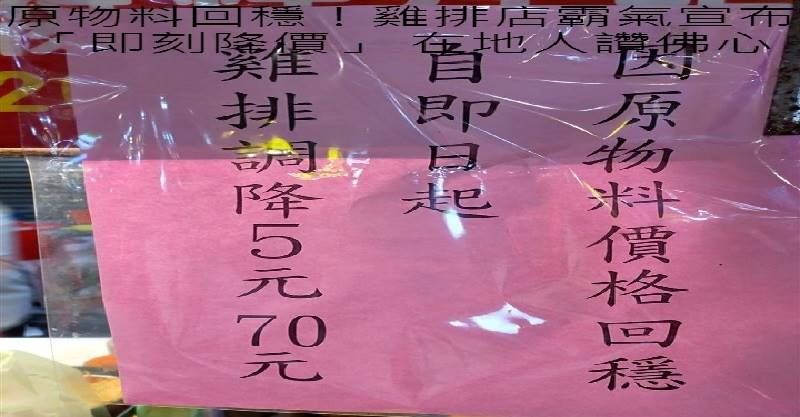 原物料回穩！雞排店霸氣宣布
「即刻降價」 在地人讚佛心
因原物料價格回穩
自即日起
雞排調降5元70元